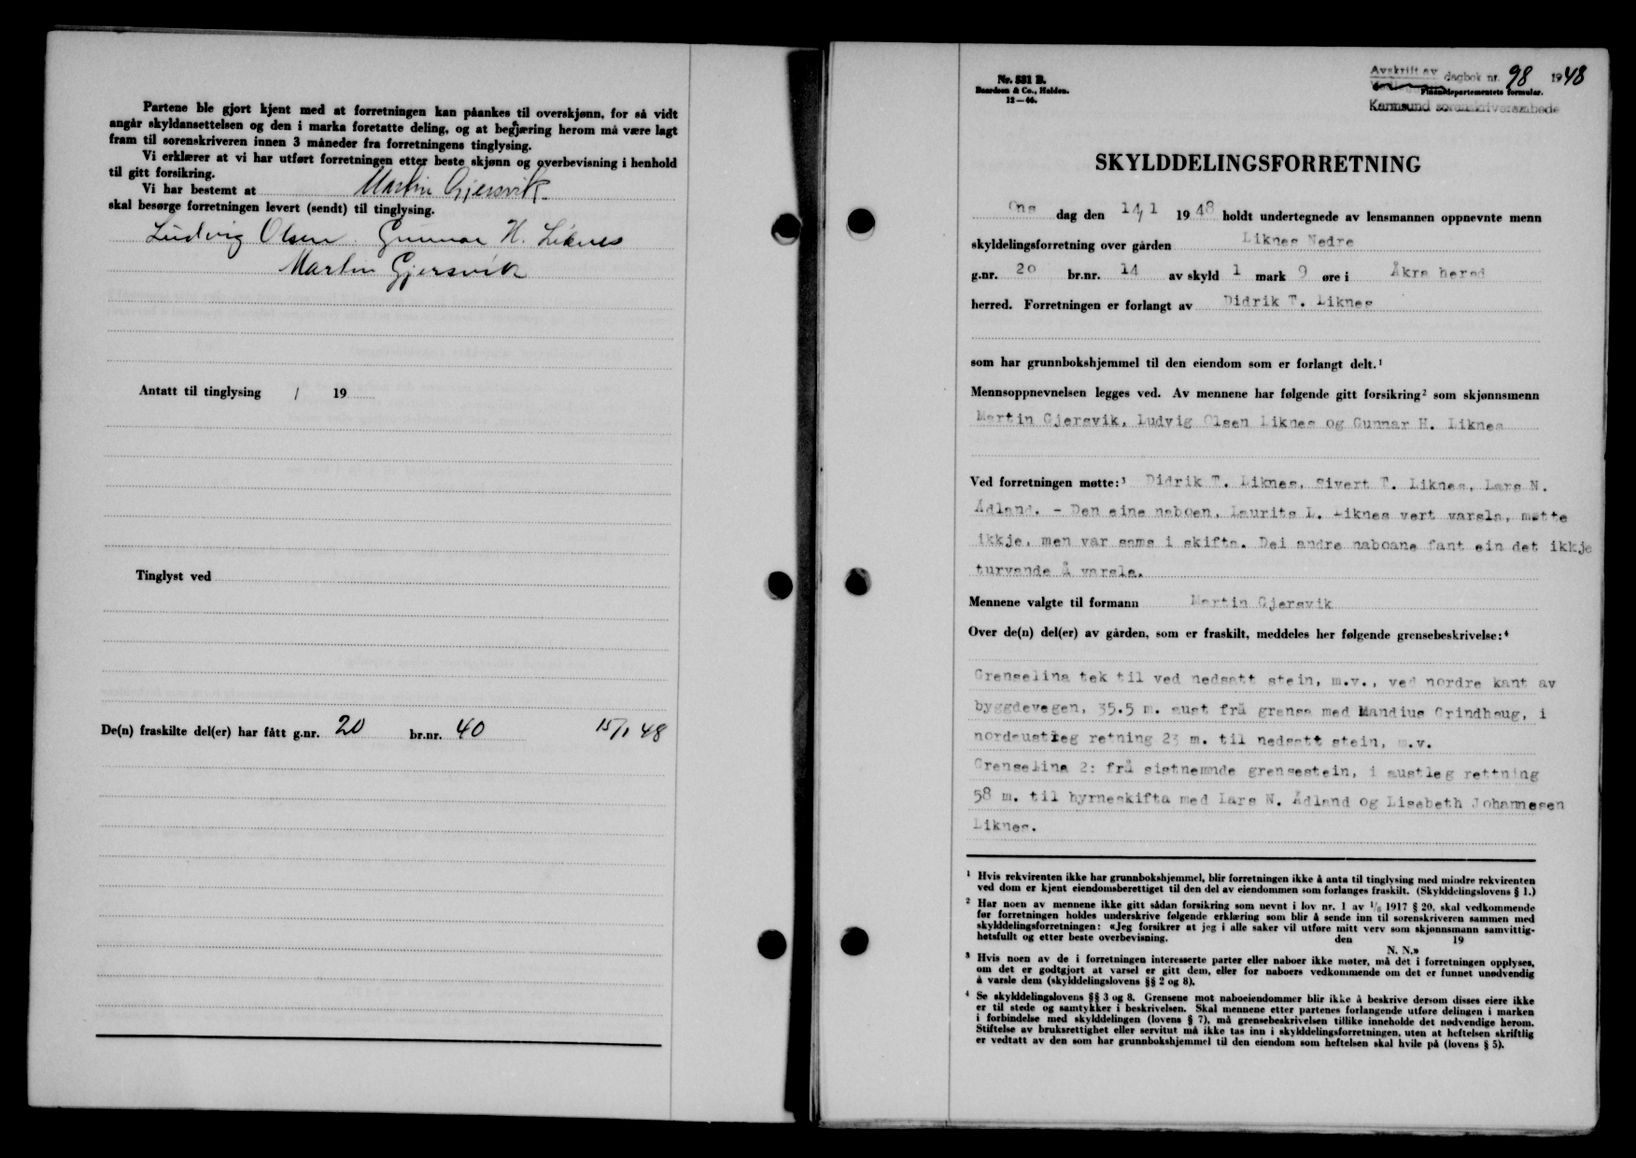 Partene ble gjort kjent med at forretningen kan påankes til overskjønn, for så vidt
angår skyldansettelsen og den i marka foretatte deling, og at begjæring herom må være lagt
fram til sorenskriveren innen 3 måneder fra forretningens tinglysing.
Vi erklærer at vi har utført forretningen etter beste skjønn og overbevisning i henhold
til gitt forsikring.
Vi har bestemt at Martin Gjersvik
skal besørge forretningen levert (sendt) til tinglysing.
Ludvig Olsen. Gunnar H. Liknes
Martin Gjersvik
Antatt til tinglysing / 19
Tinglyst ved
De(n) fraskilte del(er) har fått g.nr. 20 br.nr. 40 15/1 48
Nr. 531 B.
Baardsen & Co., Halden.
12—46.
Avskrift av dagbok nr. 98 1948
Finansdepartementets formular.
Karmsund sorenskriverembede
SKYLDDELINGSFORRETNING
Ons dag den 14/1 1948 holdt undertegnede av lensmannen oppnevnte menn
skyldelingsforretning over gården Liknes Nedre
g.nr. 20 br.nr. 14 av skyld 1 mark 9 øre i Åkra herad
herred. Forretningen er forlangt av Didrik T. Liknes
som har grunnbokshjemmel til den eiendom som er forlangt delt.¹
Mennsoppnevnelsen legges ved. Av mennene har følgende gitt forsikring² som skjønnsmenn
Martin Gjersvik, Ludvig Olsen Liknes og Gunnar H. Liknes
Ved forretningen møtte:³ Didrik T. Liknes, Sivert T. Liknes, Lars N.
Ådland. - Den eine naboen, Laurits L. Liknes vert varsla, møtte
ikkje, men var sams i skifta. Dei andre naboane fant ein det ikkje
turvande å varsla.
Mennene valgte til formann Martin Gjersvik
Over de(n) del(er) av gården, som er fraskilt, meddeles her følgende grensebeskrivelse:⁴
Grenselina tek til ved nedsatt stein, m.v., ved nordre kant av
byggdevegen, 35.5 m. aust frå grensa med Mandius Grindhaug, i
nordaustleg retning 23 m. til nedsatt stein, m.v.
Grenselina 2: frå sistnemnde grensestein, i austleg rettning
58 m. til hyrneskifta med Lars N. Ådland og Lisabeth Johannesen
Liknes.
¹ Hvis rekvirenten ikke har grunnbokshjemmel, blir forretningen ikke å anta til tinglysing med mindre rekvirenten
ved dom er kjent eiendomsberettiget til den del av eiendommen som forlanges fraskilt. (Skylddelingslovens § 1.)
² Har noen av mennene ikke gitt sådan forsikring som nevnt i lov nr. 1 av ¹/₆ 1917 § 20, skal vedkommende
før forretningen holdes underskrive følgende erklæring som blir å sende inn til sorenskriveren sammen med
skylddelingsforretningen: «Jeg forsikrer at jeg i alle saker vil utføre mitt verv som skjønnsmann samvittig-
hetsfullt og etter beste overbevisning. den 19
N. N.»
³ Hvis noen av de i forretningen interesserte parter eller naboer ikke møter, må det i forretningen opplyses,
om det er godtgjort at varsel er gitt dem, eller for naboers vedkommende om det er funnet unødvendig
å varsle dem (skylddelingslovens §§ 2 og 8).
⁴ Se skylddelingslovens §§ 3 og 8. Grensene mot naboeiendommer blir ikke å beskrive dersom disses eiere ikke
er til stede og samtykker i beskrivelsen. Skal mennene etter partenes forlangende utføre delingen i marken
i forbindelse med skylddelingen (lovens § 7), må grensebeskrivelsen tillike inneholde det nødvendige herom.
Stiftelse av bruksrettighet eller servitut må ikke tas inn i skylddelingsforretningen, uten at heftelsen skriftlig
er vedtatt av den som har grunnbokshjemmel til den eiendom som heftelsen skal hvile på (lovens § 5).